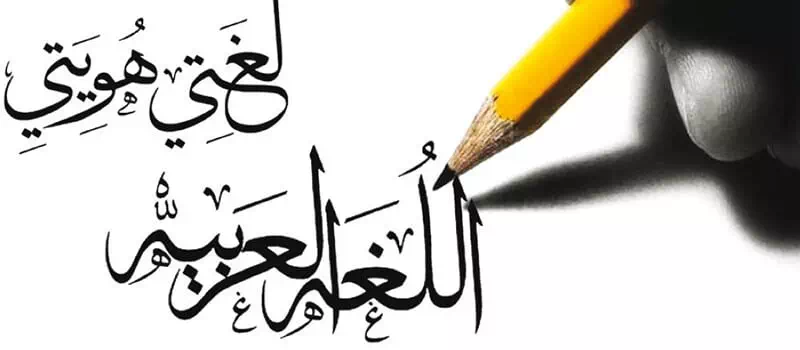 لغَتِي هُويَتِي
اللُغَه العَربيه